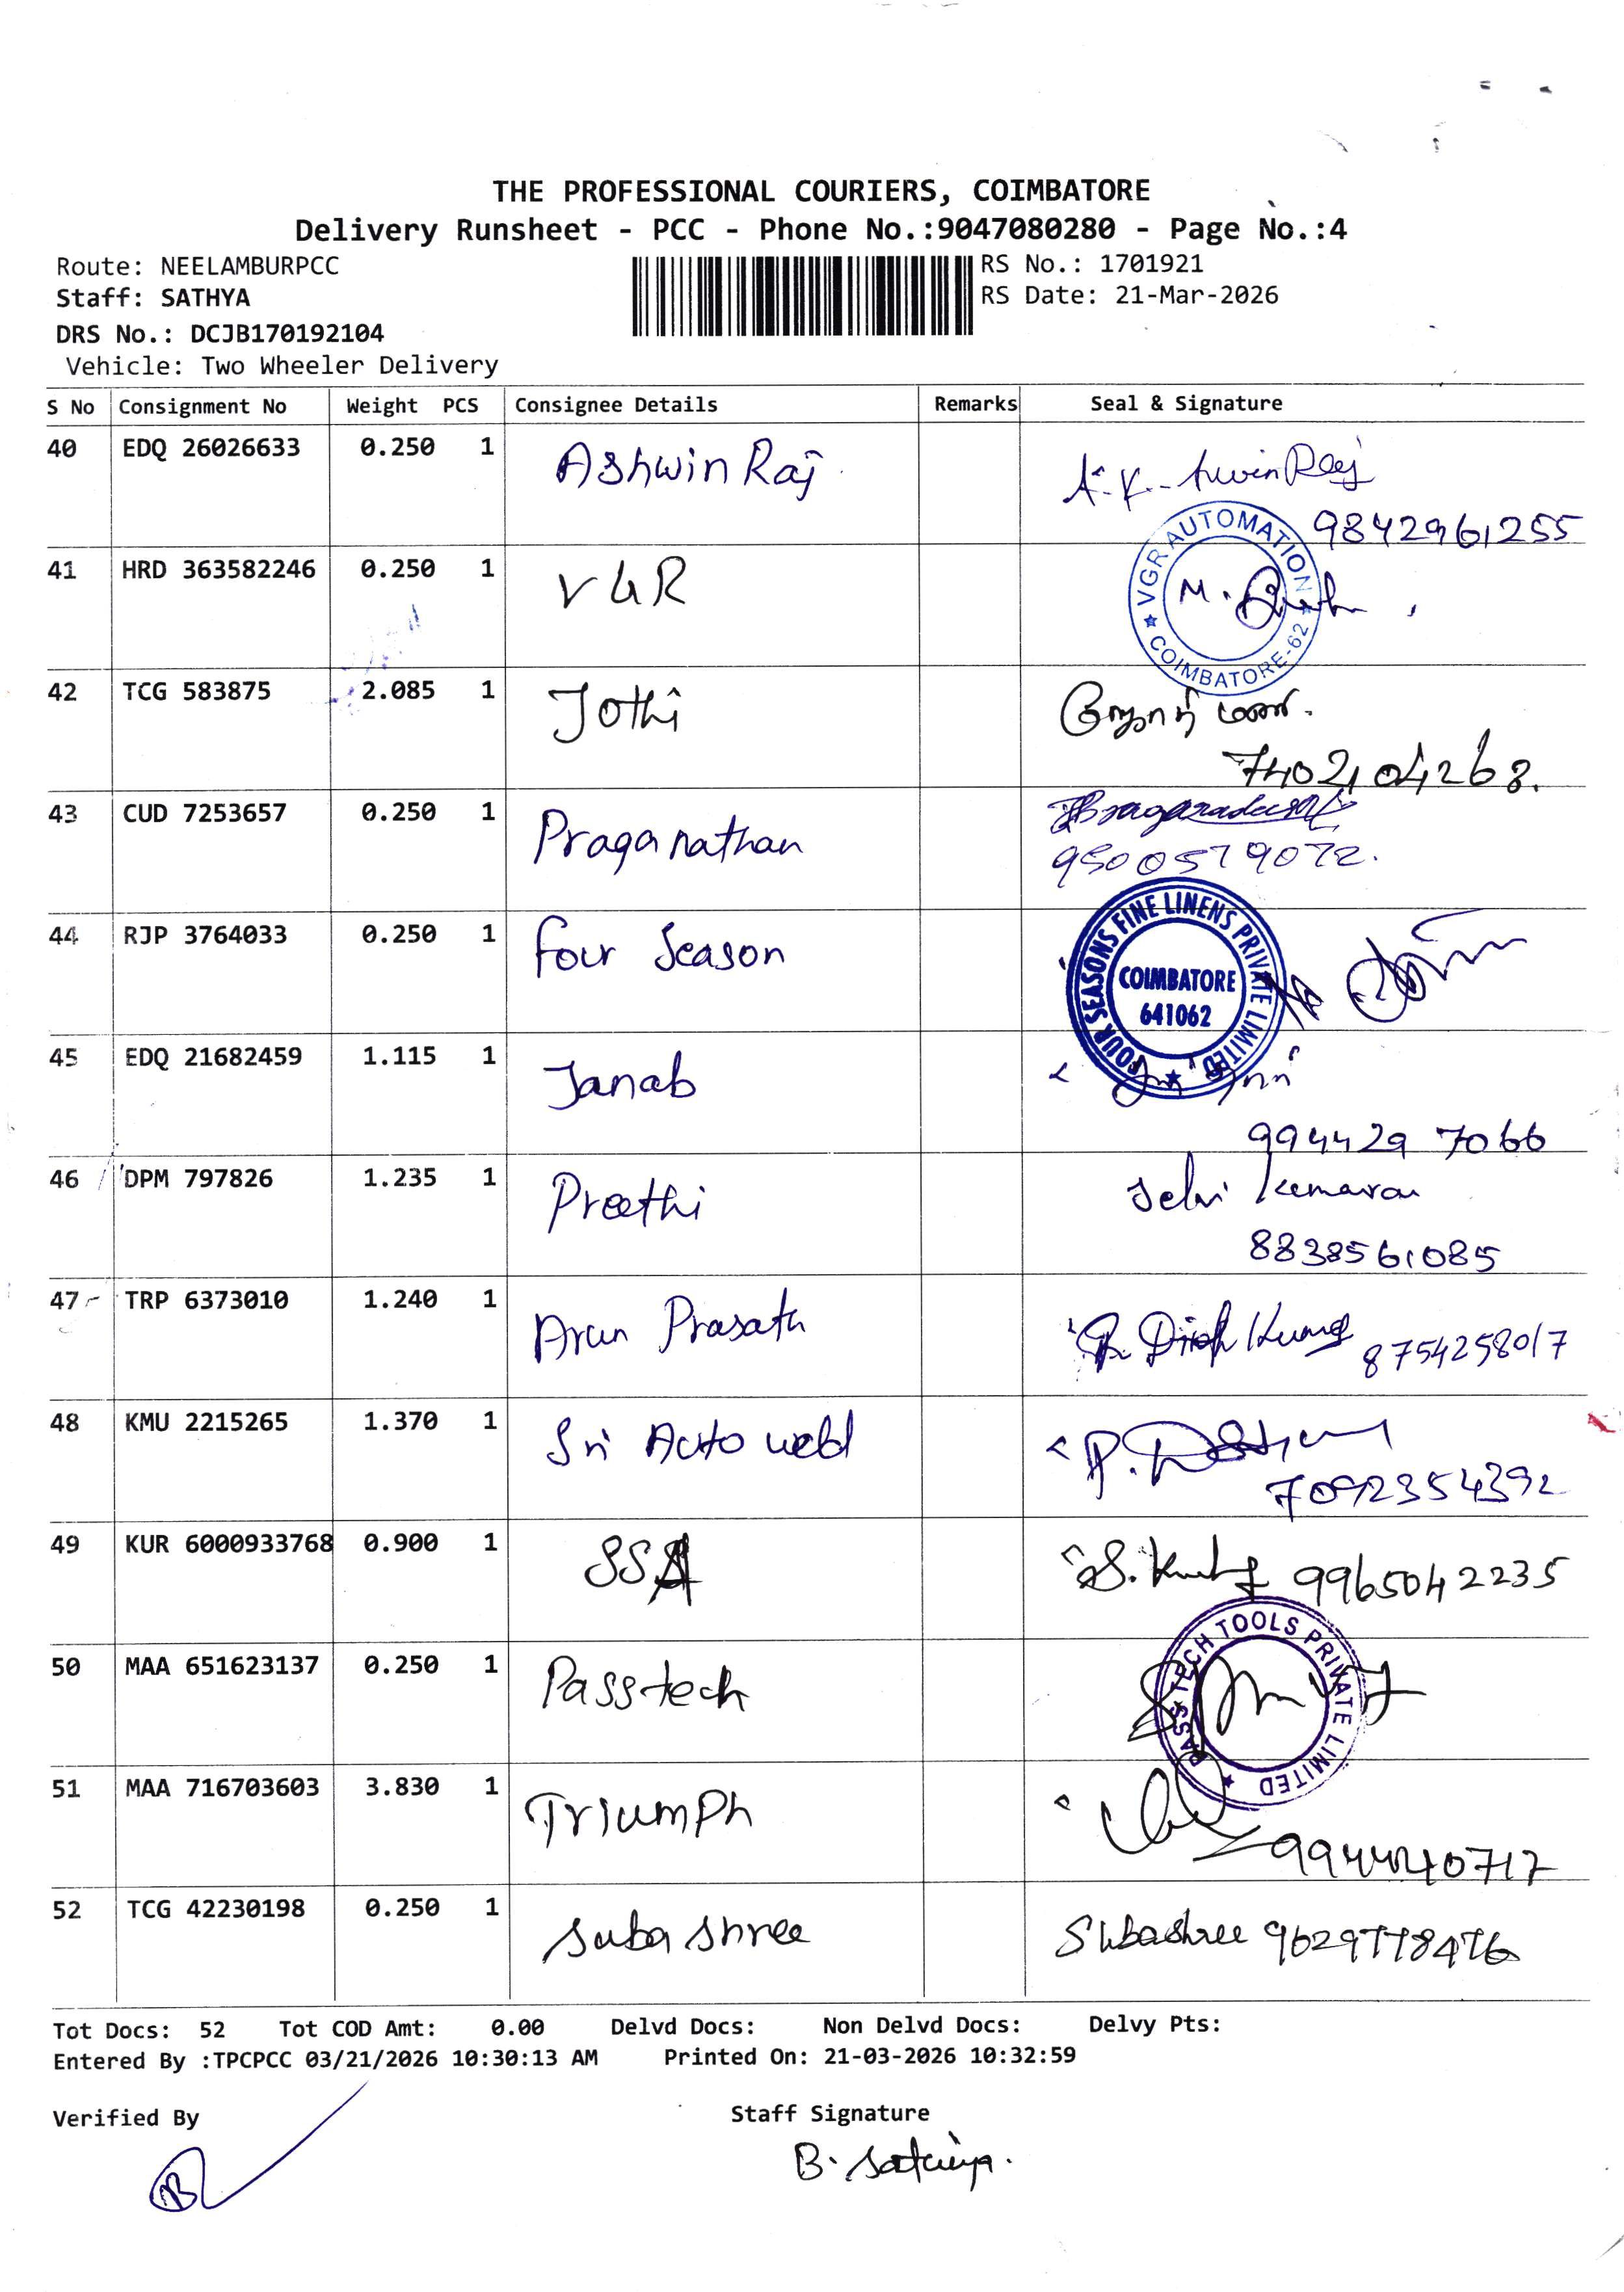 THE PROFESSIONAL COURIERS, COIMBATORE
Delivery Runsheet - PCC - Phone No.:9047080280 - Page No.:4
Route: NEELAMBURPCC
RS No.: 1701921
Staff: SATHYA
RS Date: 21-Mar-2026
DRS No.: DCJB170192104
Vehicle: Two Wheeler Delivery
S No Consignment No Weight PCS Consignee Details Remarks Seal & Signature
40 EDQ 26026633 0.250 1 Ashwin Raj
9842961255
41 HRD 363582246 0.250 1 VGR
VGR AUTOMATION COIMBATORE-62
M.
42 TCG 583875 2.085 1 Jothi
7402104268.
43 CUD 7253657 0.250 1 Praganathan
9500579072.
44 RJP 3764033 0.250 1 Four Season
FOUR SEASONS FINE LINENS PRIVATE LIMITED
COIMBATORE
641062
45 EDQ 21682459 1.115 1 Janab
994429 7066
46 DPM 797826 1.235 1 Preethi
Selvi Kumaran
8838561085
47 TRP 6373010 1.240 1 Arun Prasath
8754258017
48 KMU 2215265 1.370 1 Sri Auto weld
7092354392
49 KUR 6000933768 0.900 1 SSA
9965042235
50 MAA 651623137 0.250 1 Passtech
PASS TECH TOOLS PRIVATE LIMITED
51 MAA 716703603 3.830 1 Triumph
52 TCG 42230198 0.250 1 Suba shree
Subashree
Tot Docs: 52 Tot COD Amt: 0.00 Delvd Docs: Non Delvd Docs: Delvy Pts:
Entered By :TPCPCC 03/21/2026 10:30:13 AM Printed On: 21-03-2026 10:32:59
Verified By Staff Signature
B. Sathiya.